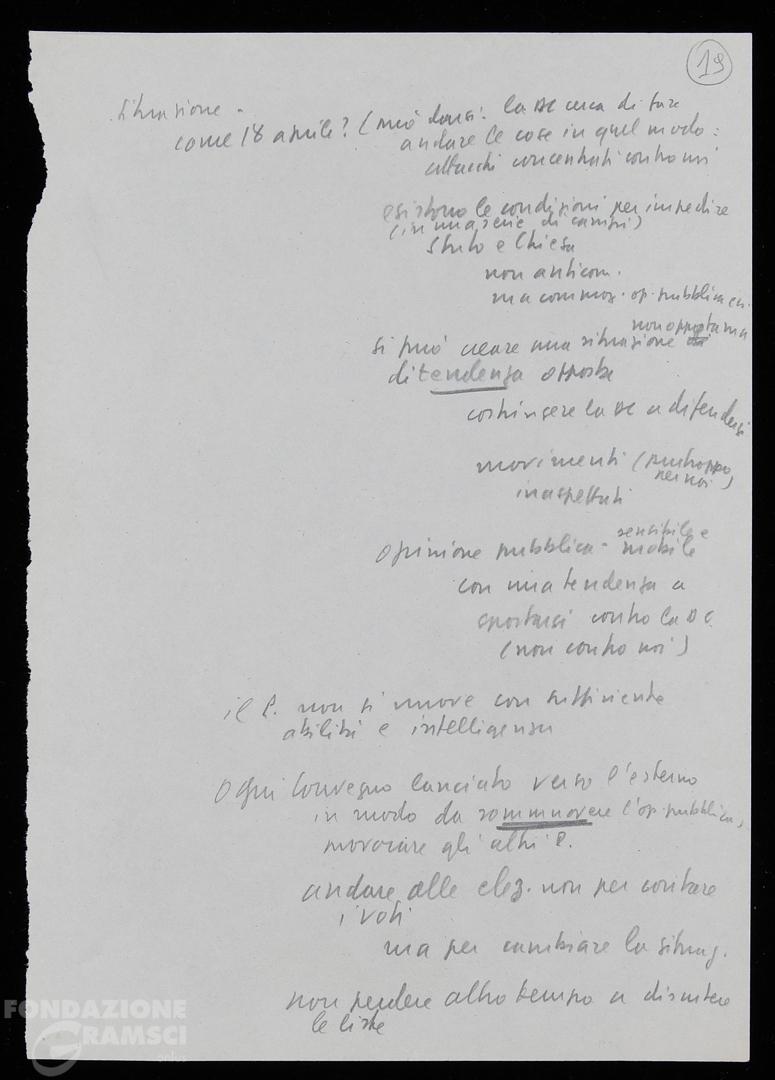 19
Situazione -
come 18 aprile? (può darsi: la DC cerca di fare
andare le cose in quel modo:
attacchi concentrati contro noi
esistono le condizioni per impedire
(in una serie di campi)
Stato e Chiesa
non anticom.
ma commoz. op. pubblica
non opposta ma
si può creare una situazione
di tendenza opposta
costringere la DC a difendersi
movimenti (purtroppo
per noi)
inaspettati
sensibile e
opinione pubblica - mobile
con una tendenza a
spostarsi contro la DC
(non contro noi)
il P. non si muove con sufficiente
abilità e intelligenza
Ogni Convegno lanciato verso l'esterno
in modo da sommuovere l'op. pubblica,
gli altri P.
andare alle elez. non per contare
i voti
ma per cambiare la situaz.
non perdere altro tempo a discutere
le liste
FONDAZIONE
GRAMSCI
onlus